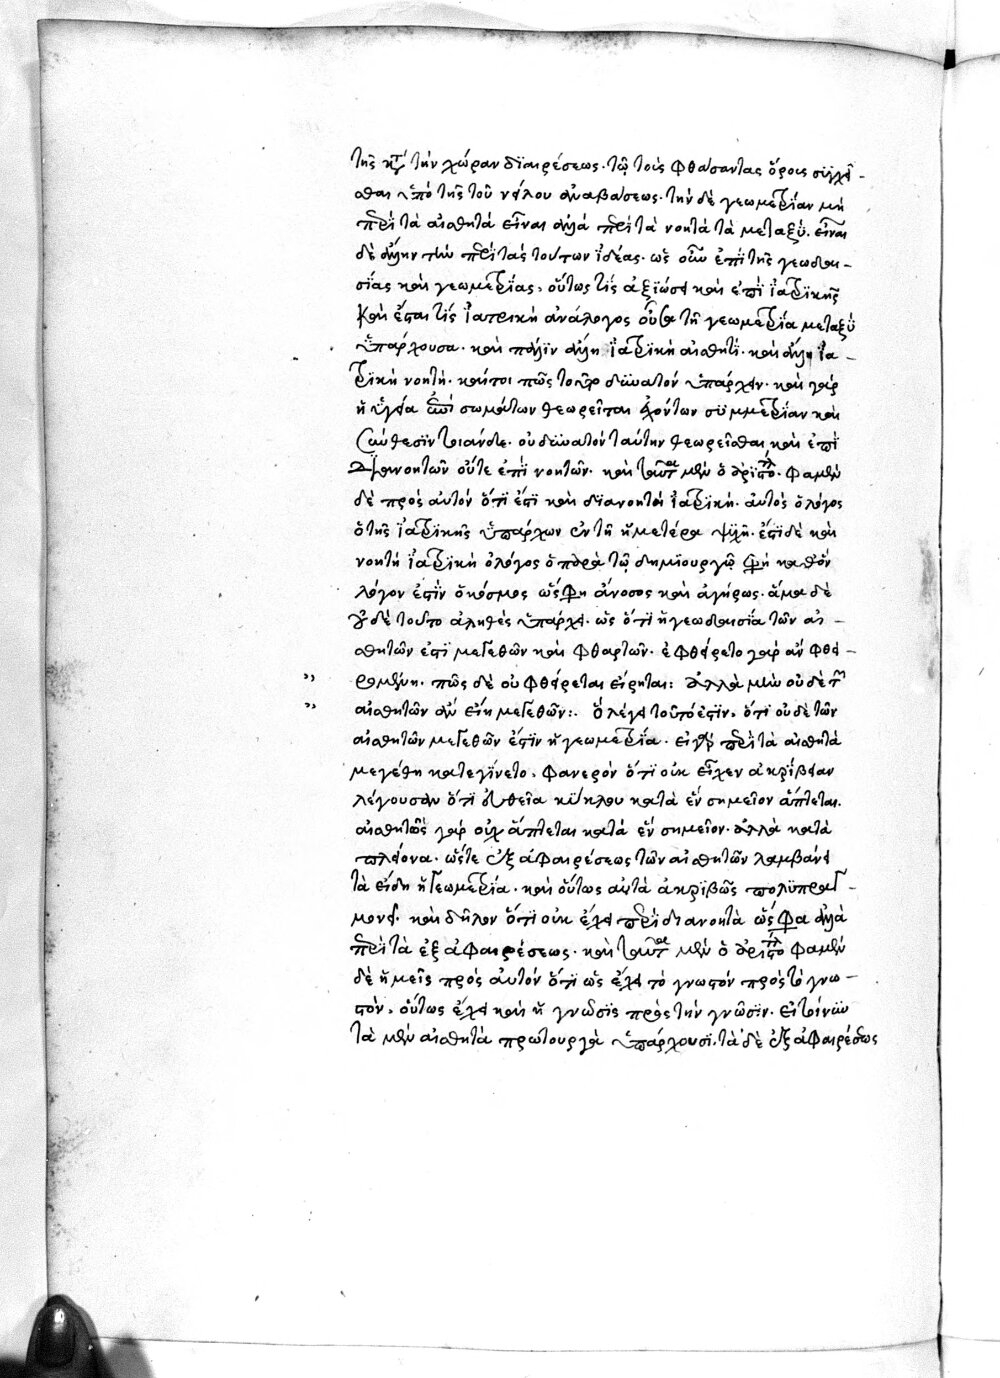 τῆς κατὰ τὴν χώραν διαιρέσεως. τῷ τοὺς φθάσαντας ὅρους συγχεῖ-
σθαι ὑπὸ τῆς τοῦ νείλου ἀναβάσεως. τὴν δὲ γεωμετρίαν μὴ
περὶ τὰ αἰσθητὰ εἶναι ἀλλὰ περὶ τὰ νοητὰ τὰ μεταξύ. εἶναι
δὲ ἄλλην τὴν περὶ τὰς τούτων ἰδέας. ὡς οὖν ἐπὶ τῆς γεωδαι-
σίας καὶ γεωμετρίας, οὕτως τίς ἀξιώσει καὶ ἐπὶ ἰατρικῆς
καὶ ἔσται τίς ἰατρικὴ ἀνάλογος οὖσα τῇ γεωμετρίᾳ μεταξὺ
ὑπάρχουσα. καὶ πάλιν ἄλλη ἰατρικὴ αἰσθητή. καὶ ἄλλη ἰα-
τρικὴ νοητή. καίτοι πῶς τοῦτο δυνατὸν ὑπάρχειν. καὶ γὰρ
ἡ ὑγεία ἐπὶ σωμάτων θεωρεῖται ἐχόντων συμμετρίαν καὶ
σύνθεσιν τοιάνδε. οὐ δυνατὸν ταύτην θεωρεῖσθαι καὶ ἐπὶ
διανοητῶν οὔτε ἐπὶ νοητῶν. καὶ ταῦτα μὲν ὁ ἀριστοτέλης. φαμὲν
δὲ πρὸς αὐτὸν ὅτι ἐστὶ καὶ διανοητὴ ἰατρική. αὐτὸς ὁ λόγος
ὁ τῆς ἰατρικῆς ὑπάρχων ἐν τῇ ἡμετέρα ψυχῇ. ἔστι δὲ καὶ
νοητὴ ἰατρικὴ ὁ λόγος ὁ παρὰ τῷ δημιουργῷ καθ' ὃν
λόγον ἐστὶν ὁ κόσμος ἄνοσος καὶ ἀγήρως. ἅμα δὲ
οὐδὲ τοῦτο ἀληθὲς ὑπάρχει. ὡς ὅτι ἡ γεωδαισία τῶν αἰ-
σθητῶν ἐστὶ μεγεθῶν καὶ φθαρτῶν. ἐφθείρετο γὰρ ἂν φθει-
ρομένων. πῶς δὲ οὐ φθείρεται εἴρηται: ἀλλὰ μὴν οὐδὲ τῶν
αἰσθητῶν ἂν εἴη μεγεθῶν: ὃ λέγει τοῦτό ἐστιν, ὅτι οὐδὲ τῶν
αἰσθητῶν μεγεθῶν ἐστὶν ἡ γεωμετρία. εἰ γὰρ περὶ τὰ αἰσθητὰ
μεγέθη κατεγίνετο, φανερὸν ὅτι οὐκ εἶχεν ἀκρίβειαν
λέγουσαν ὅτι εὐθεῖα κύκλου κατὰ ἓν σημεῖον ἅπτεται.
αἰσθητῶς γὰρ οὐχ ἅπτεται κατὰ ἓν σημεῖον. ἀλλὰ κατὰ
πλείονα. ὥστε ἐξ ἀφαιρέσεως τῶν αἰσθητῶν λαμβάνει
τὰ εἴδη ἡ γεωμετρία. καὶ οὕτως αὐτὰ ἀκριβῶς πολυπραγ-
μονεῖ. καὶ δῆλον ὅτι οὐκ ἔχει περὶ διανοητὰ ἀλλὰ
περὶ τὰ ἐξ ἀφαιρέσεως. καὶ ταῦτα μὲν ὁ ἀριστοτέλης φαμὲν
δὲ ἡμεῖς πρὸς αὐτὸν ὅτι ὡς ἔχει τὸ γνωστὸν πρὸς τὸ γνω-
στὸν, οὕτως ἔχει καὶ ἡ γνῶσις πρὸς τὴν γνῶσιν. εἰ τοίνυν
τὰ μὲν αἰσθητὰ πρωτουργὰ ὑπάρχουσι, τὰ δὲ ἐξ ἀφαιρέσεως